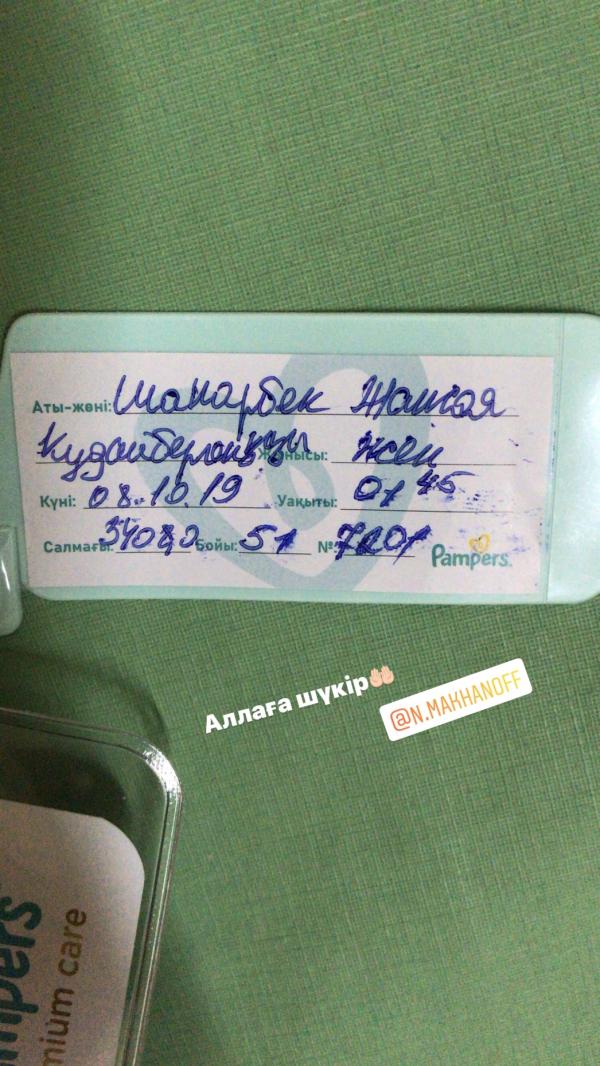 Аты-жөні: Шанарбек Жансая
Кудайбергенқызы Жынысы: жен
Күні: 08.10.19 Уақыты: 01 45
Салмағы: 3408,0 Бойы: 51 № 7201
Pampers.
Аллаға шүкір🤲🏻
@N.MAKHANOFF
mpers
mium care